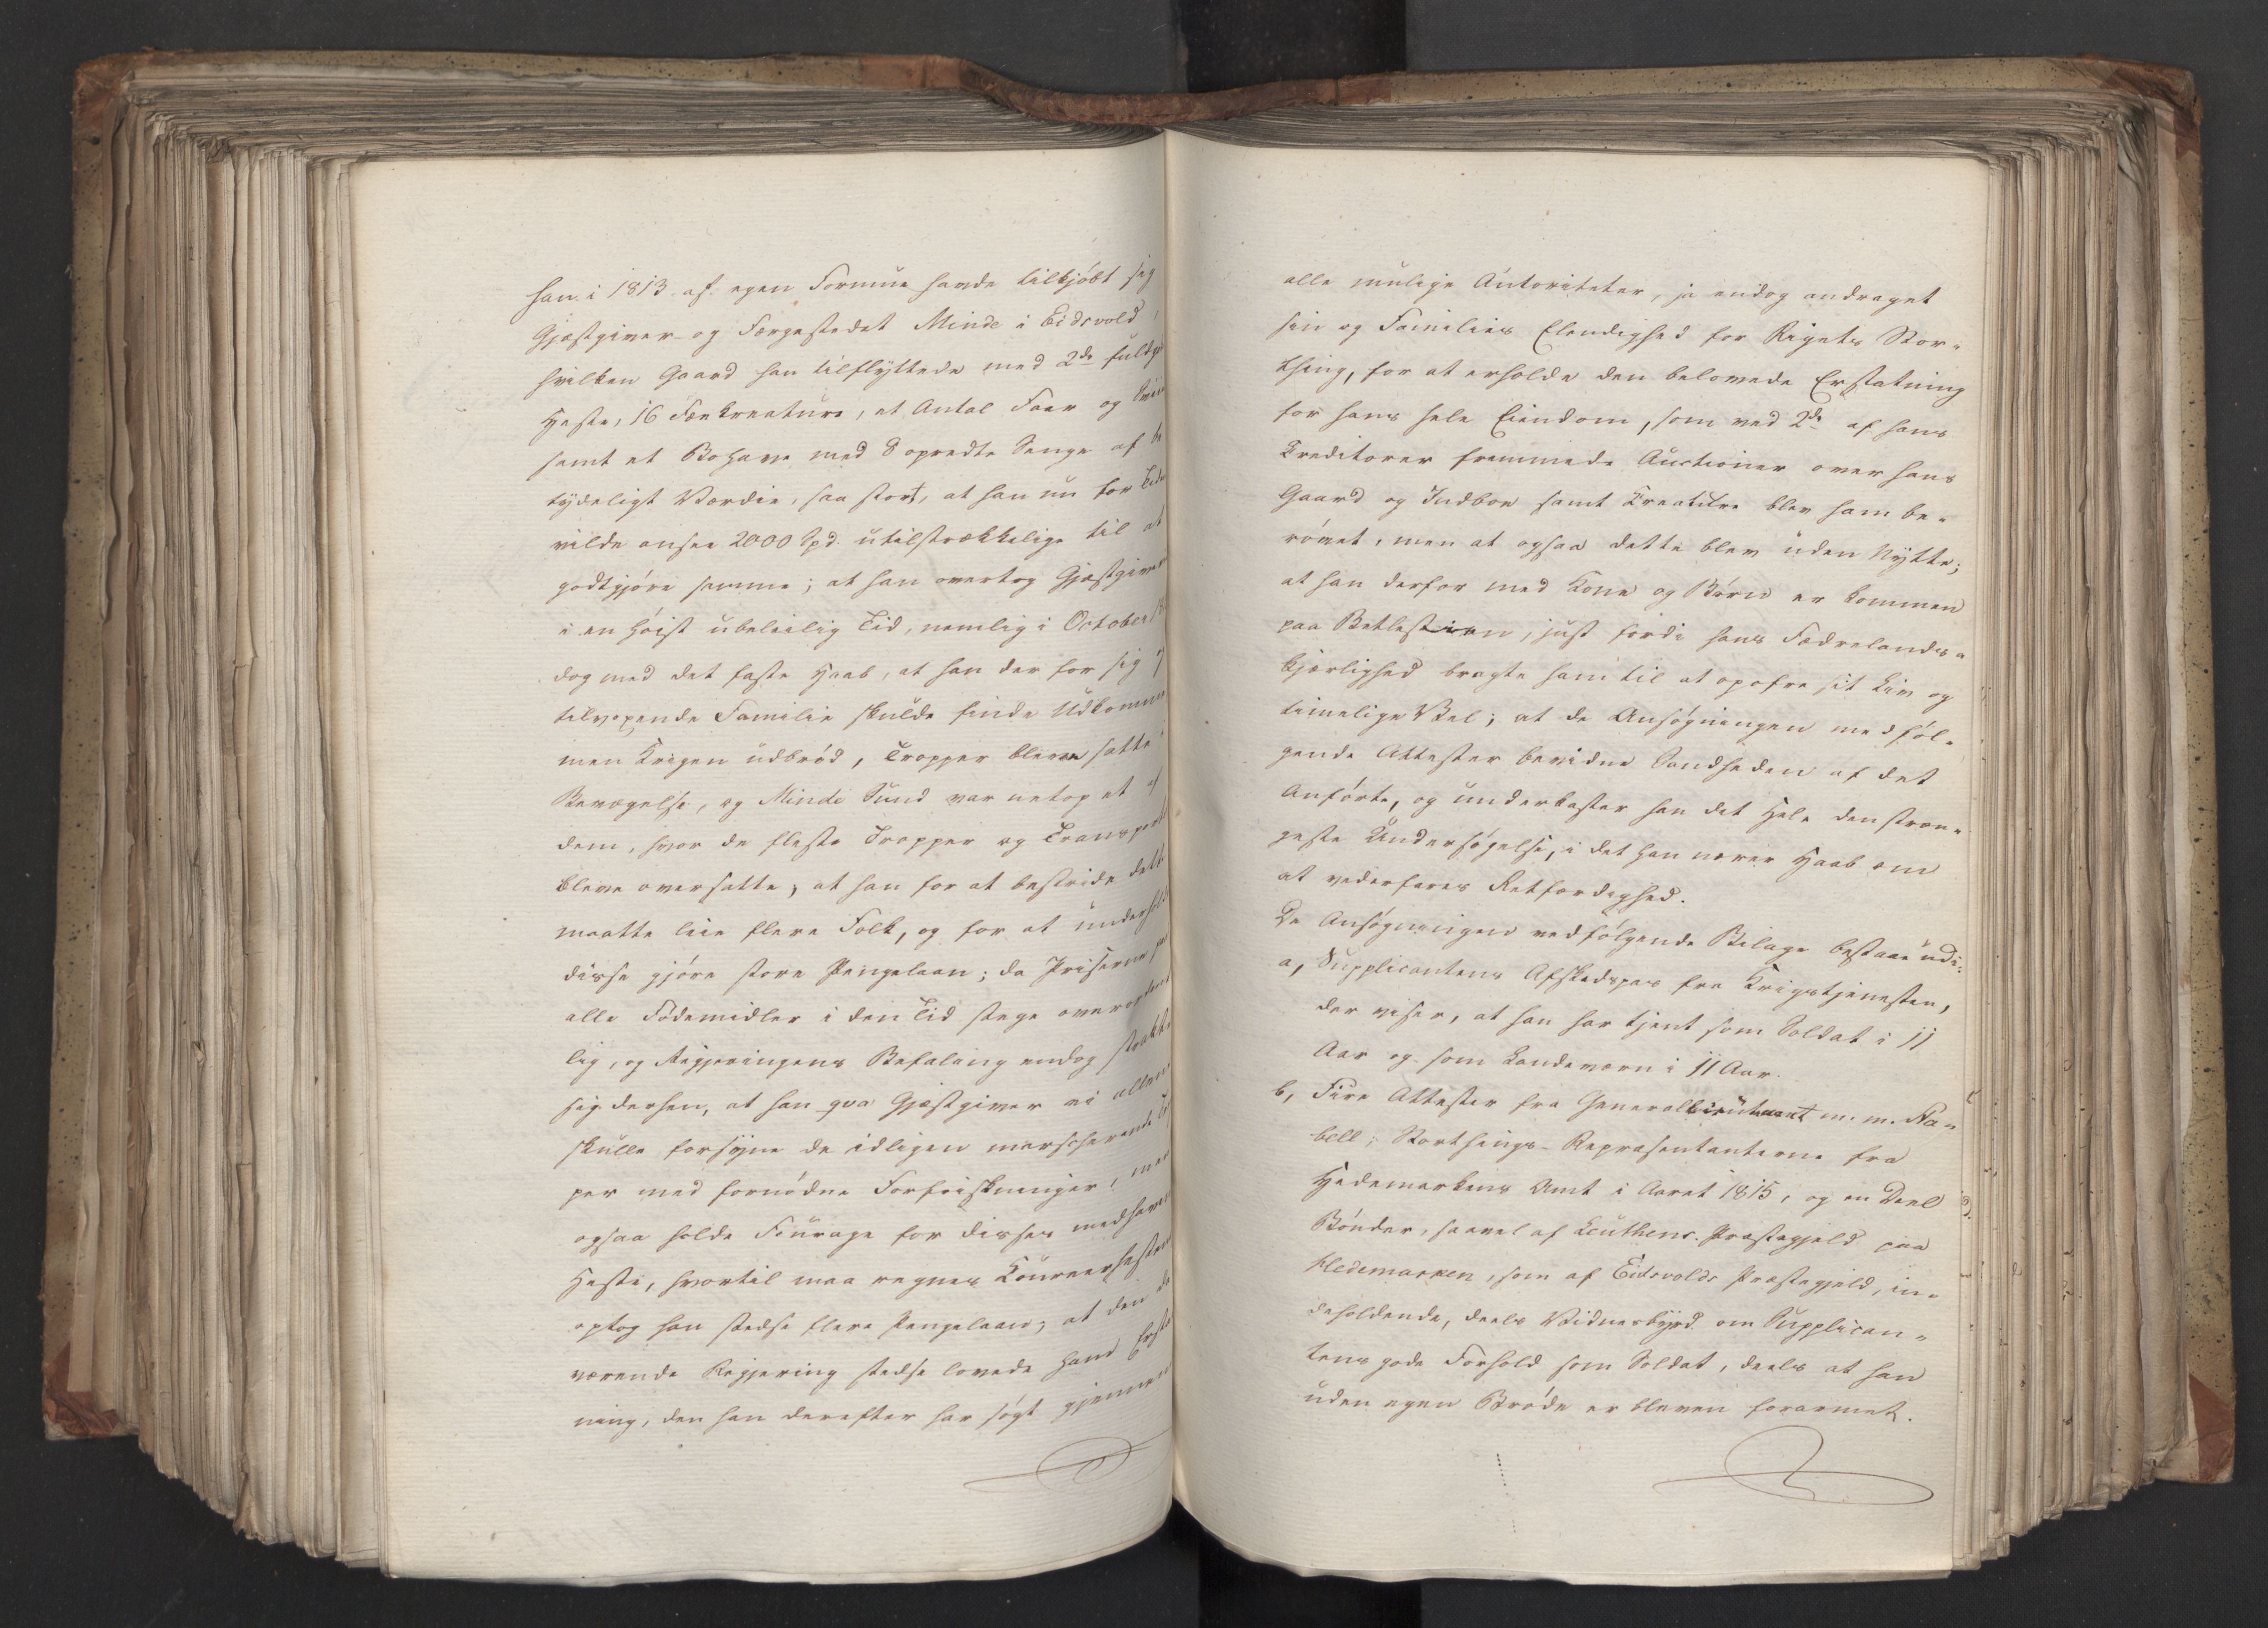 han i 1813 af egen Formue havde tilkjöbt sig
Gjæstgiver- og Færgestedet Minde i Eidsvold,
hvilken Gaard han tilflyttede med 2de fuldgo
Heste, 16 Fækreature, et Antal Faar og Sviin
samt et Bohave med 8 opredte Senge af be
tydeligt Værdie, saa stort, at han nu for Tiden
vilde ansee 2000 Spd. utilstrækkelige til at
godtgjöre samme; at han overtog Gjæstgiver
i en höist ubeleilig Tid, nemlig i October
dog med det faste Haab, at han der for sig og
tilvoxende Familie skulde finde Udkomme
men Krigen udbröd, Tropper bleve satte i
Bevægelse, og Minde Sund var netop et af
dem, hvor de fleste Tropper og Transport
bleve oversatte; at han for at bestride dette
maatte leie flere Folk, og for at underhold
disse gjöre store Pengelaan; da Priserne paa
alle Födemidler i den Tid stege overordent
lig, og Regjeringens Befaling endog strakte
sig derhen, at han qva Gjæstgiver ei allene
skulle forsyne de idligen marscherende Trop
per med fornödne Forfriskninger, men
ogsaa holde Fourage for disses medhavende
Heste, hvortil maa regnes Coureerhestene
optog han stedse flere Pengelaan; at den da
værende Regjering stedse lovede ham Erstat
ning, den han derefter har sögt gjennem
alle mulige Autoriteter, ja endog andraget
sin og Families Elendighed for Rigets Stor-
thing, for at erholde den belovede Erstatning
for hans hele Eiendom, som ved 2de af hans
Creditorer fremmede Auctioner over hans
Gaard og Indboe samt Creature blev ham be-
rövet, men at ogsaa dette blev uden Nytte;
at han derfor med Kone og Börn er kommen
paa Betlestien, just fordi hans Fædrelands-
kjærlighed bragte ham til at opofre sit Liv og
timelige Vel; at de Ansögningen medföl-
gende Attester bevidne Sandheden af det
Anförte, og underkaster han det Hele den stræn-
geste Undersögelse, i det han nærer Haab om
at vederfares Retfærdighed.
De Ansögningen vedfölgende Bilage bestaae udi:
a, Supplicantens Afskedspas fra Krigstjenesten,
der viser, at han har tjent som Soldat i 11
Aar og som Landeværn i 11 Aar.
b, Fire Attester fra Generallieutnant m. m. Sta-
bell; Storthings-Repræsentanterne fra
Hedemarkens Amt i Aaret 1815, og en Deel
Bönder, saavel af Leuthens Præstegjeld paa
Hedemarken, som af Eidsvolds Præstegjeld, in-
deholdende, deels Vidnesbyrd om Supplican-
tens gode Forhold som Soldat, deels at han
uden egen Bröde er bleven forarmet.